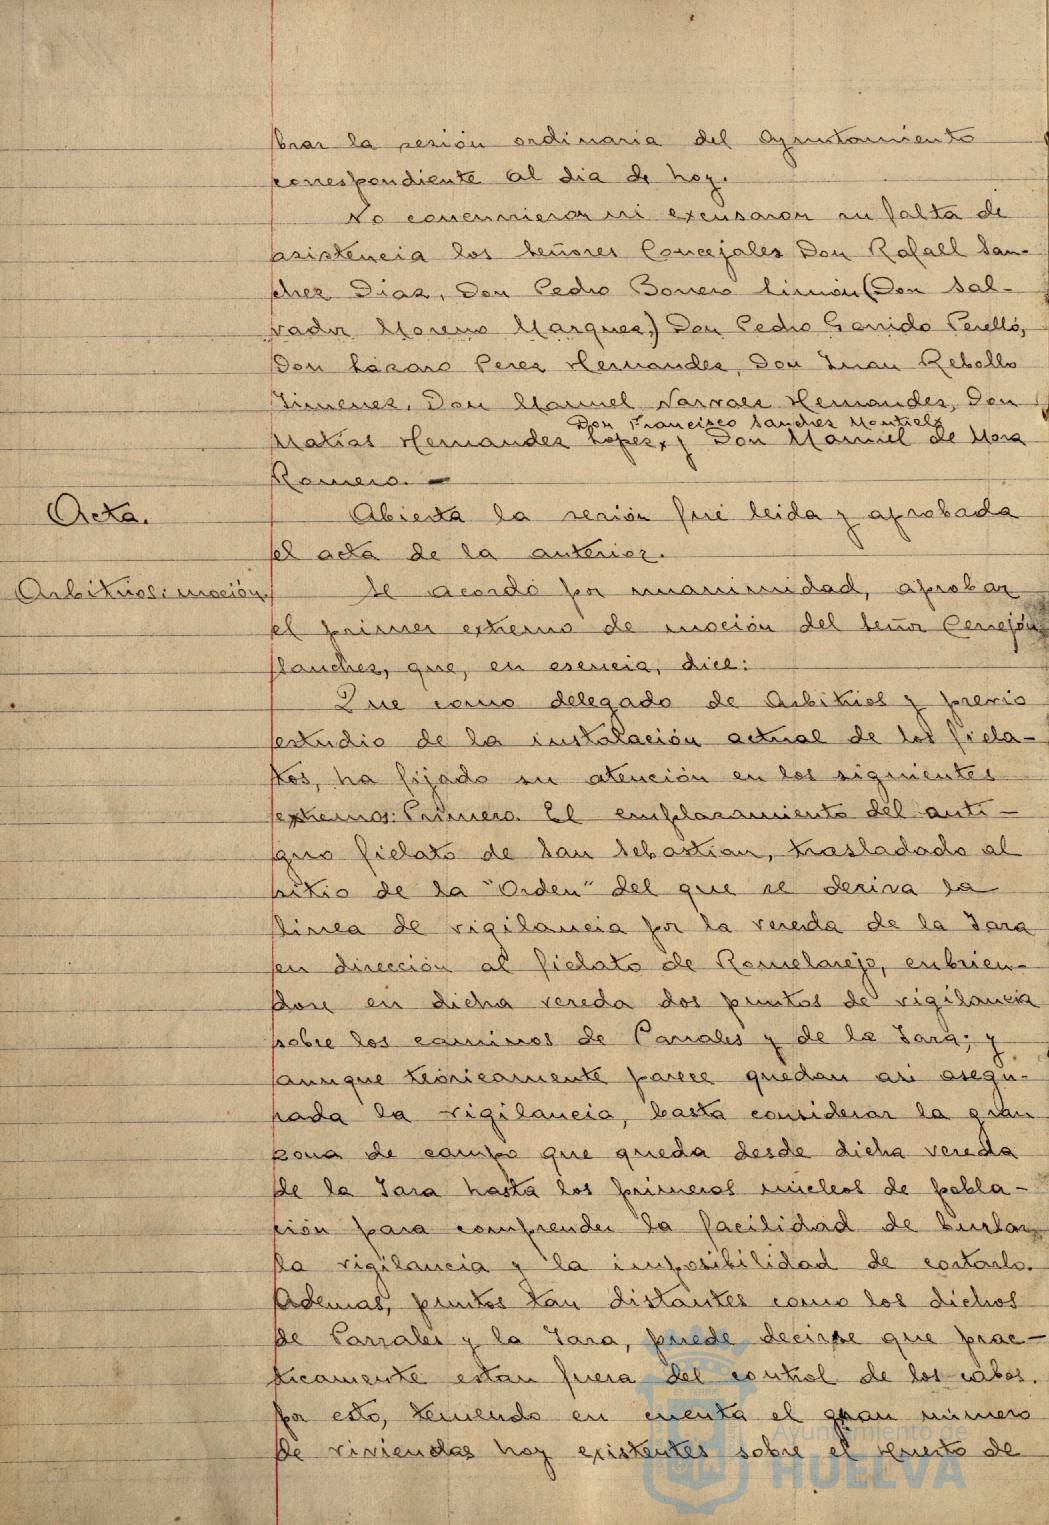 brar la sesión ordinaria del Ayuntamiento
correspondiente al dia de hoy.
No concurrieron ni excusaron su falta de
asistencia los Señores Concejales Don Rafael San-
chez Diaz, Don Pedro Borrero Limón (Don Sal-
vador Moreno Marquez,) Don Pedro Garrido Perelló,
Don Lázaro Perez Hernandez, Don Juan Rebollo
Jimenez, Don Manuel Narvaez Hernandez, Don
Don Francisco Sanchez Montiel x
Matías Hernandez Lopez, x y Don Manuel de Mora
Romero. —
Acta.
Abierta la sesión fué leida y aprobada
el acta de la anterior.
Arbitrios: moción.
Se acordó por unanimidad, aprobar
el primer extremo de moción del Señor Cerrejón
Sanchez, que, en esencia, dice:
Que como delegado de Arbitrios y previo
estudio de la instalación actual de los fiela-
tos, ha fijado su atención en los siguientes
extremos: Primero. El emplazamiento del anti-
guo fielato de San Sebastian, trasladado al
sitio de la "Orden" del que se deriva la
linea de vigilancia por la vereda de la Jara
en dirección al fielato de Romeralejo, cubrien-
dose en dicha vereda dos puntos de vigilancia
sobre los caminos de Parrales y de la Jara; y
aunque teóricamente parece quedan asi asegu-
rada la vigilancia, basta considerar la gran
zona de campo que queda desde dicha vereda
de la Jara hasta los primeros núcleos de pobla-
ción para comprender la facilidad de burlar
la vigilancia y la imposibilidad de cortarlo.
Ademas, puntos tan distantes como los dichos
de Parrales y la Jara, puede decirse que prac-
ticamente estan fuera del control de los cabos.
Por esto, teniendo en cuenta el gran número
de viviendas hoy existentes sobre el Huerto de
Ayuntamiento de
HUELVA